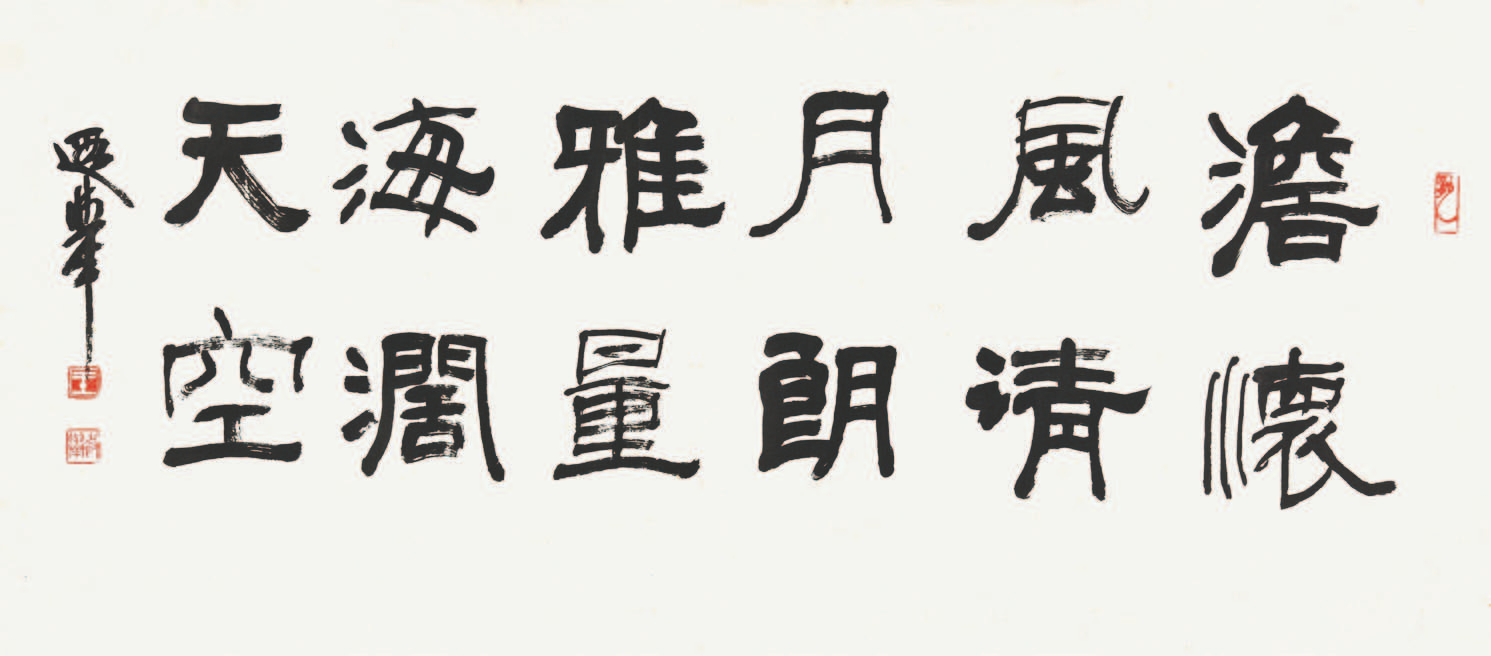 澹懷
風清
月朗
雅量
海濶
天空